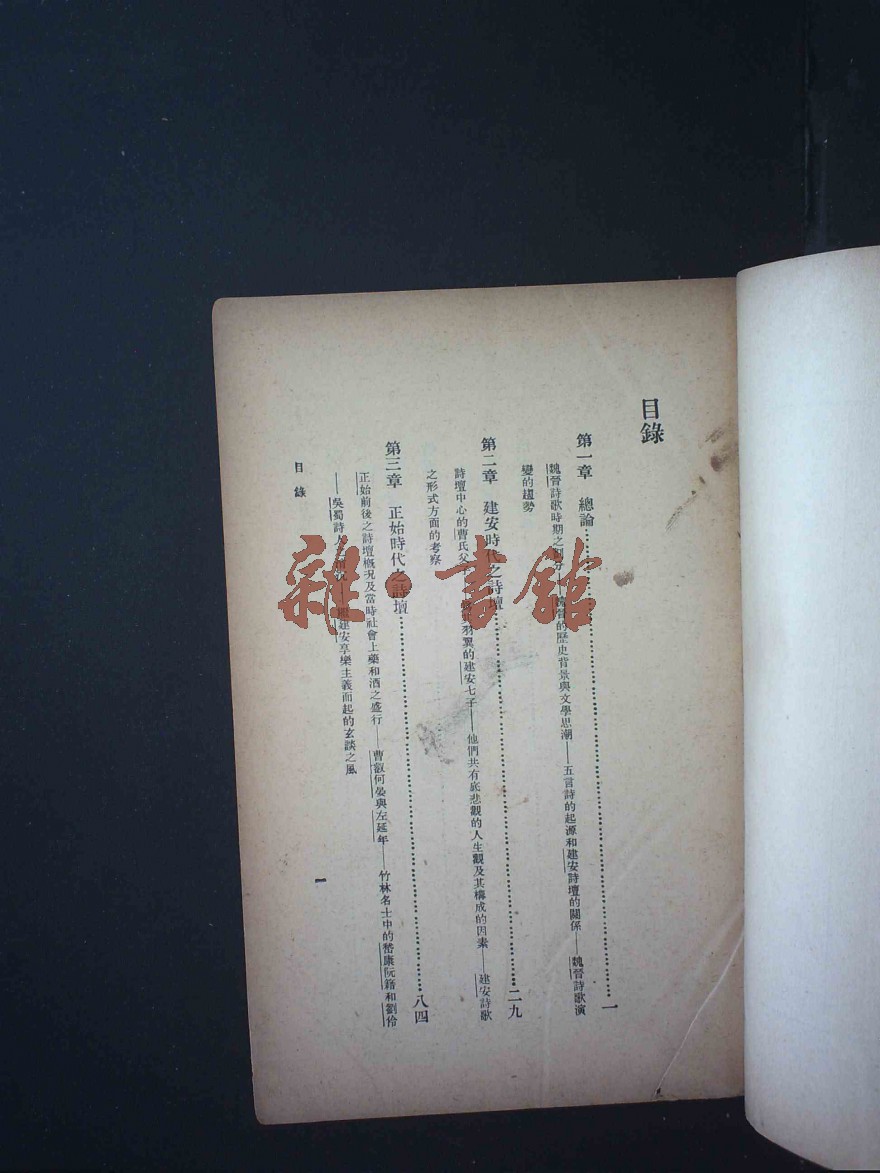 目錄
第一章 總論……一
魏晉詩歌時期之劃分——魏晉的歷史背景與文學思潮——五言詩的起源和建安詩壇的關係——魏晉詩歌演
變的趨勢
第二章 建安時代之詩壇……二九
詩壇中心的曹氏父 羽翼的建安七子——他們共有底悲觀的人生觀及其構成的因素——建安詩歌
之形式方面的考察
第三章 正始時代之詩壇……八四
正始前後之詩壇概況及當時社會上藥和酒之盛行——曹叡何晏與左延年——竹林名士中的嵇康阮籍和劉伶
——吳蜀詩人 建安享樂主義而起的玄談之風
目錄
一
雜·書館